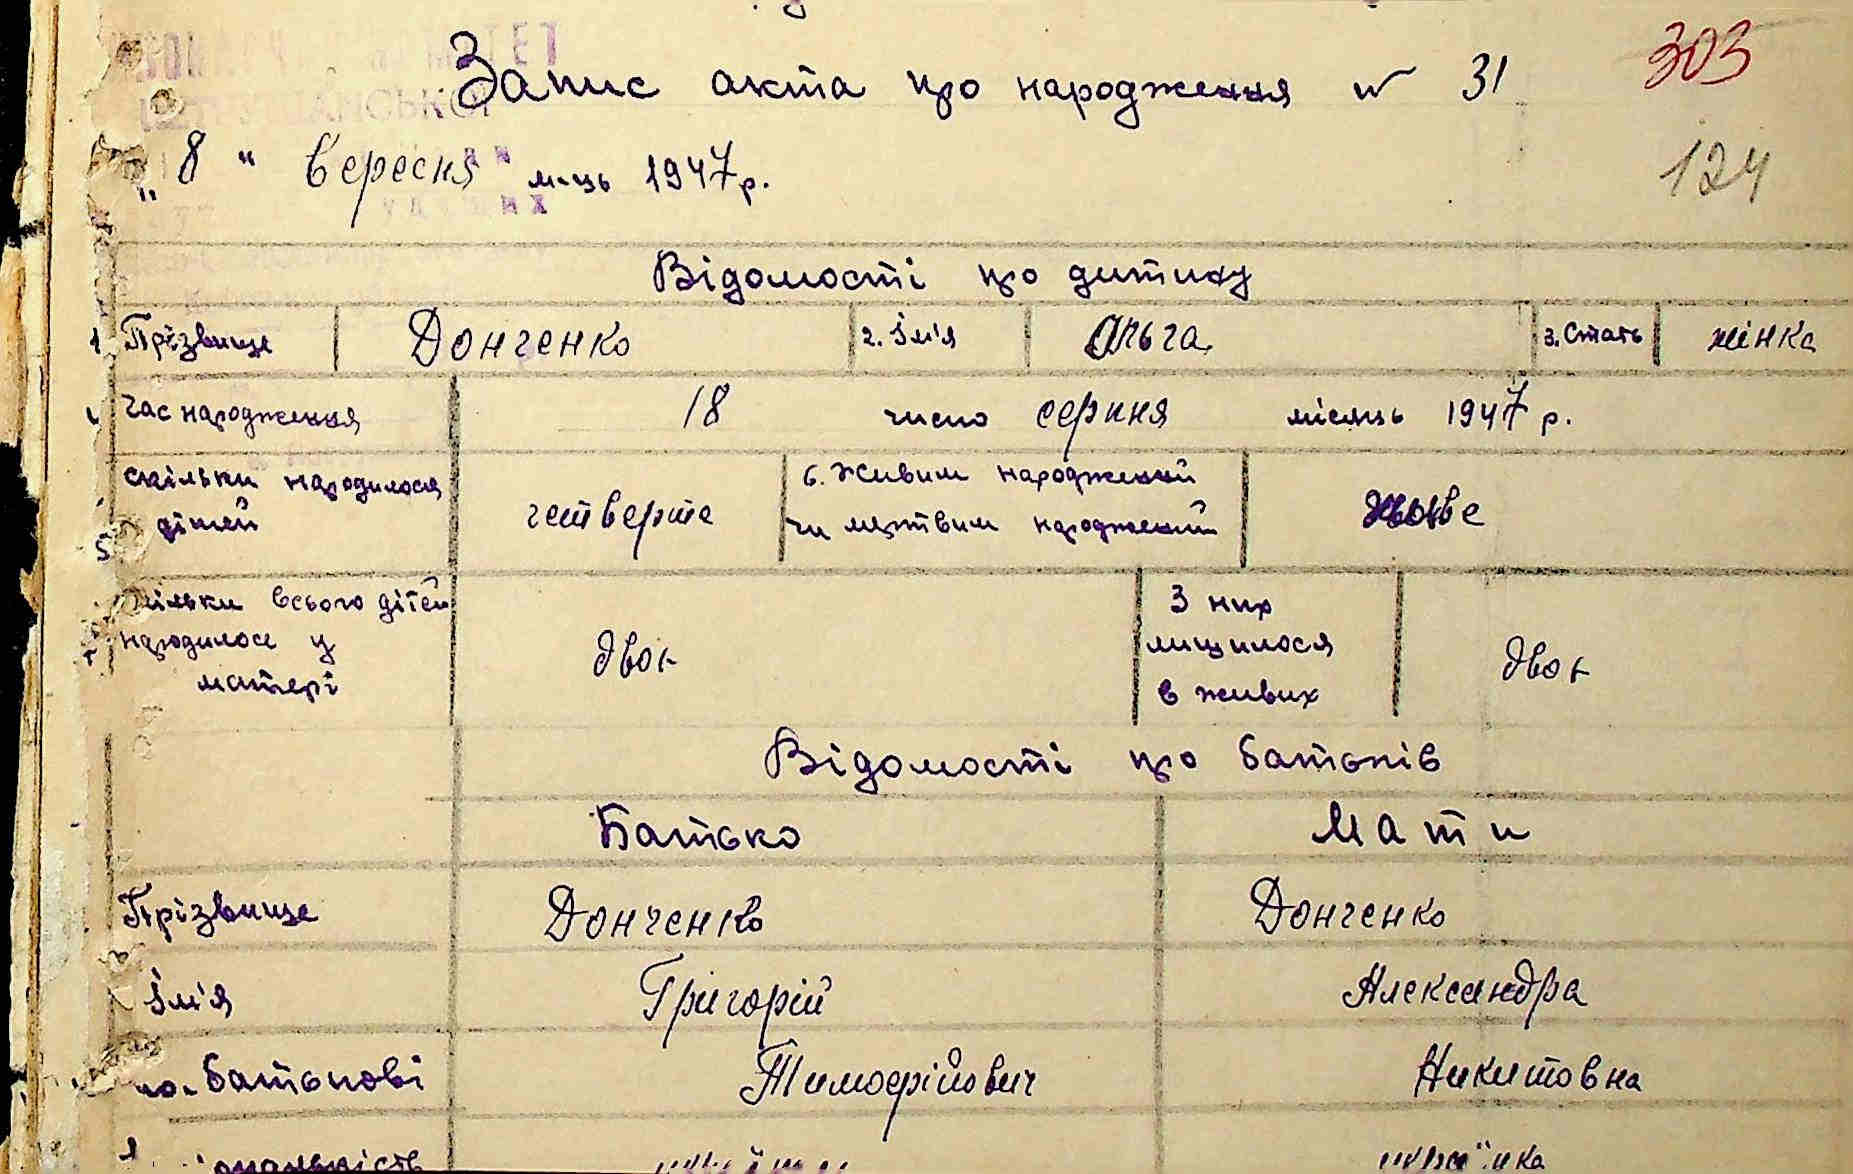 Запис акта про народження № 31
303
„ 8 " вересня м-ць 1947 р.
124
Відомості про дитину
1 Прізвище Донченко 2. Ім'я Ольга 3. Стать жінка
Час народження 18 число серпня місяць 1947 р.
5 скільки народилося дітей четверте 6. Живим народжений чи мертвим народжений живе
всього дітей народилося у матері двоє З них лишилося в живих двоє
Відомості про батьків
Батько Мати
Прізвище Донченко Донченко
Ім'я Григорій Александра
по-батькові Тимофійович Никитовна